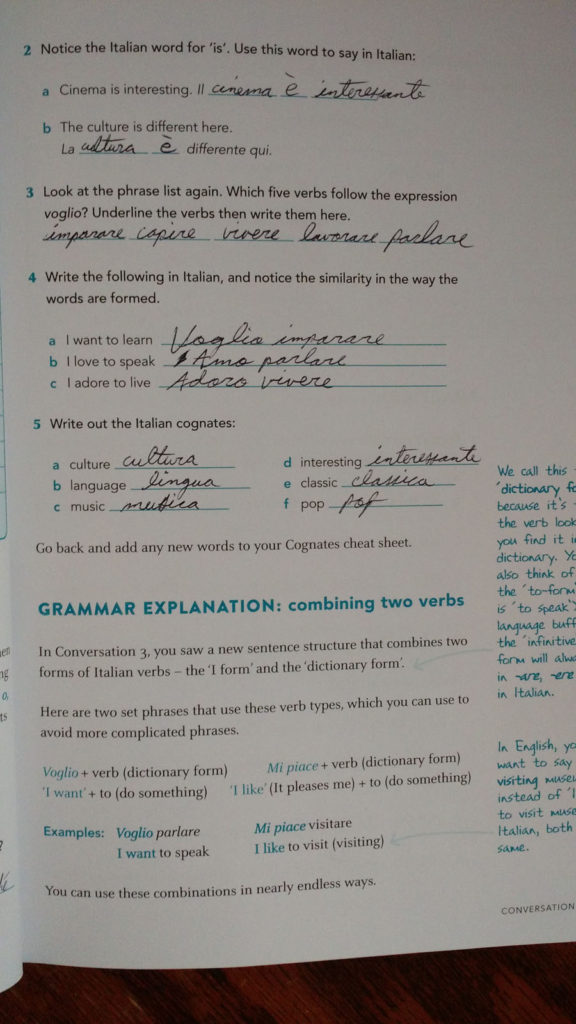 2 Notice the Italian word for 'is'. Use this word to say in Italian:
a Cinema is interesting. Il cinema è interessante
b The culture is different here.
La cultura è differente qui.
3 Look at the phrase list again. Which five verbs follow the expression
voglio? Underline the verbs then write them here.
imparare capire vivere lavorare parlare
4 Write the following in Italian, and notice the similarity in the way the
words are formed.
a I want to learn Voglio imparare
b I love to speak Amo parlare
c I adore to live Adoro vivere
5 Write out the Italian cognates:
a culture cultura d interesting interessante
b language lingua e classic classica
c music musica f pop pop
Go back and add any new words to your Cognates cheat sheet.
GRAMMAR EXPLANATION: combining two verbs
In Conversation 3, you saw a new sentence structure that combines two
forms of Italian verbs – the 'I form' and the 'dictionary form'.
Here are two set phrases that use these verb types, which you can use to
avoid more complicated phrases.
Voglio + verb (dictionary form) Mi piace + verb (dictionary form)
'I want' + to (do something) 'I like' (It pleases me) + to (do something)
Examples: Voglio parlare Mi piace visitare
I want to speak I like to visit (visiting)
You can use these combinations in nearly endless ways.
We call this
'dictionary
because it's
the verb
you find it
dictionary.
also think of
the 'to-form'
is 'to speak'
language
the 'infinitive
form will
in -are, -ere
in Italian.
In English,
want to say
visiting
instead of
to visit
Italian, both
same.
CONVERSATION